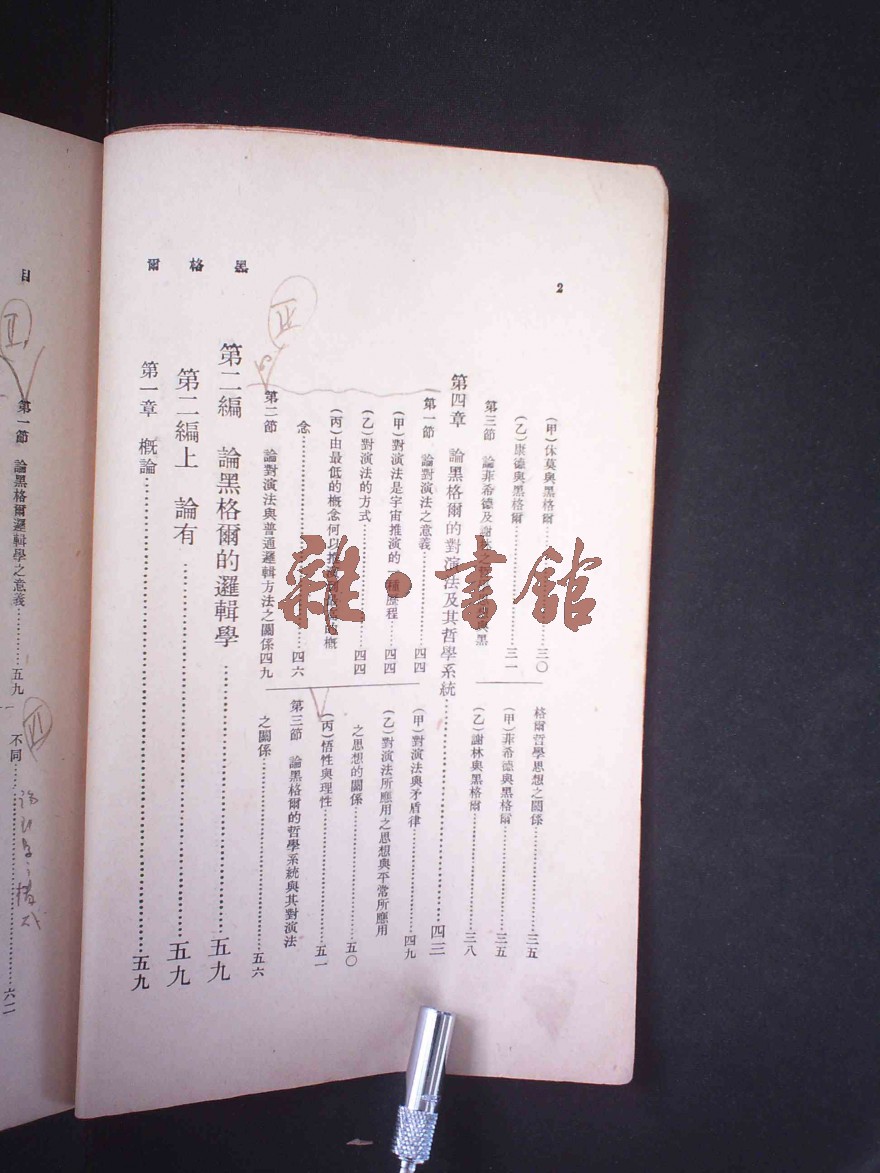 黑格爾
2
(甲)休莫與黑格爾……三〇
(乙)康德與黑格爾……三一
第三節 論菲希德及謝林之哲學思想與黑
格爾哲學思想之關係……三五
(甲)菲希德與黑格爾……三五
(乙)謝林與黑格爾……三八
第四章 論黑格爾的對演法及其哲學系統……四三
第一節 論對演法之意義……四四
(甲)對演法是宇宙推演的一種歷程……四四
(乙)對演法的方式……四四
(丙)由最低的概念何以推演
概
念……四六
第二節 論對演法與普通邏輯方法之關係四九
(甲)對演法與矛盾律……四九
(乙)對演法所應用之思想與平常所應用
之思想的關係……五〇
(丙)悟性與理性……五一
第三節 論黑格爾的哲學系統與其對演法
之關係……五六
第二編 論黑格爾的邏輯學……五九
第二編上 論有……五九
第一章 概論……五九
目
第一節 論黑格爾邏輯學之意義……五九
不同……六二
II
III
VI
雜·書館